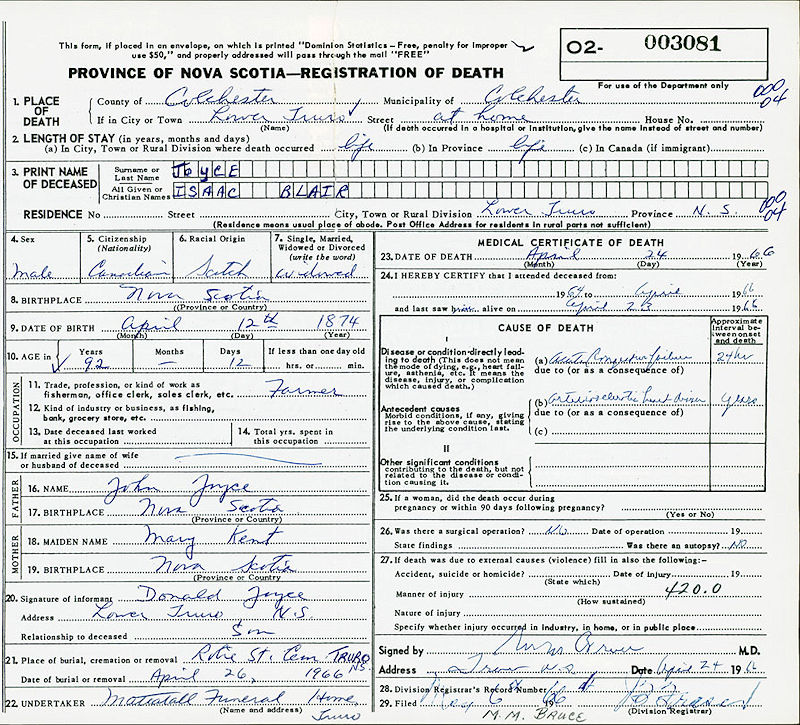 This form, if placed in an envelope, on which is printed "Dominion Statistics – Free, penalty for improper
use $50," and properly addressed will pass through the mail "FREE"
O2- 003081
PROVINCE OF NOVA SCOTIA—REGISTRATION OF DEATH
For use of the Department only
000
04
1. PLACE OF DEATH
County of Colchester Municipality of Colchester
If in City or Town Lower Truro Street at home House No.
(Name) (If death occurred in a hospital or institution, give the name instead of street and number)
2. LENGTH OF STAY (in years, months and days)
(a) In City, Town or Rural Division where death occurred life (b) In Province life (c) In Canada (if immigrant)
3. PRINT NAME OF DECEASED
Surname or Last Name JOYCE
All Given or Christian Names ISAAC BLAIR
RESIDENCE No Street City, Town or Rural Division Lower Truro Province N. S.
000
04
(Residence means usual place of abode. Post Office Address for residents in rural parts not sufficient)
4. Sex
male
5. Citizenship
(Nationality)
Canadian
6. Racial Origin
Scotch
7. Single, Married,
Widowed or Divorced
(write the word)
widowed
8. BIRTHPLACE Nova Scotia
(Province or Country)
9. DATE OF BIRTH April 12th 1874
(Month) (Day) (Year)
10. AGE in Years Months Days If less than one day old
92 — 12 hrs. or min.
OCCUPATION
11. Trade, profession, or kind of work as
fisherman, office clerk, sales clerk, etc. Farmer
12. Kind of industry or business, as fishing,
bank, grocery store, etc.
13. Date deceased last worked
at this occupation
14. Total yrs. spent in
this occupation
15. If married give name of wife
or husband of deceased
FATHER
16. NAME John Joyce
17. BIRTHPLACE Nova Scotia
(Province or Country)
MOTHER
18. MAIDEN NAME Mary Kent
19. BIRTHPLACE Nova Scotia
(Province or Country)
20. Signature of informant Donald Joyce
Address Lower Truro N.S.
Relationship to deceased Son
21. Place of burial, cremation or removal St. Cem TRURO N.S.
Date of burial or removal April 26, 1966
22. UNDERTAKER Mattatall Funeral Home,
(Name and address) Truro
MEDICAL CERTIFICATE OF DEATH
23. DATE OF DEATH April 24 1966
(Month) (Day) (Year)
24. I HEREBY CERTIFY that I attended deceased from:
1964 to April 1966
and last saw him alive on April 23 1966
CAUSE OF DEATH
Approximate
interval be-
tween onset
and death
I
Disease or condition directly lead-
ing to death (This does not mean
the mode of dying, e.g., heart fail-
ure, asthenia, etc. It means the
disease, injury, or complication
which caused death.)
(a) Acute failure 24 hr
due to (or as a consequence of)
Antecedent causes
Morbid conditions, if any, giving
rise to the above cause, stating
the underlying condition last.
(b) arteriosclerotic heart disease years
due to (or as a consequence of)
(c)
II
Other significant conditions
contributing to the death, but not
related to the disease or condi-
tion causing it.
25. If a woman, did the death occur during
pregnancy or within 90 days following pregnancy?
(Yes or No)
26. Was there a surgical operation? No Date of operation 19
State findings Was there an autopsy? NO
27. If death was due to external causes (violence) fill in also the following:-
Accident, suicide or homicide? Date of injury 19
(State which)
Manner of injury 420.0
(How sustained)
Nature of injury
Specify whether injury occurred in industry, in home, or in public place
Signed by M.D.
Address Truro N.S Date April 24 1966
28. Division Registrar's Record Number
29. Filed May 6th 1966
(Division Registrar)
M. M. BRUCE